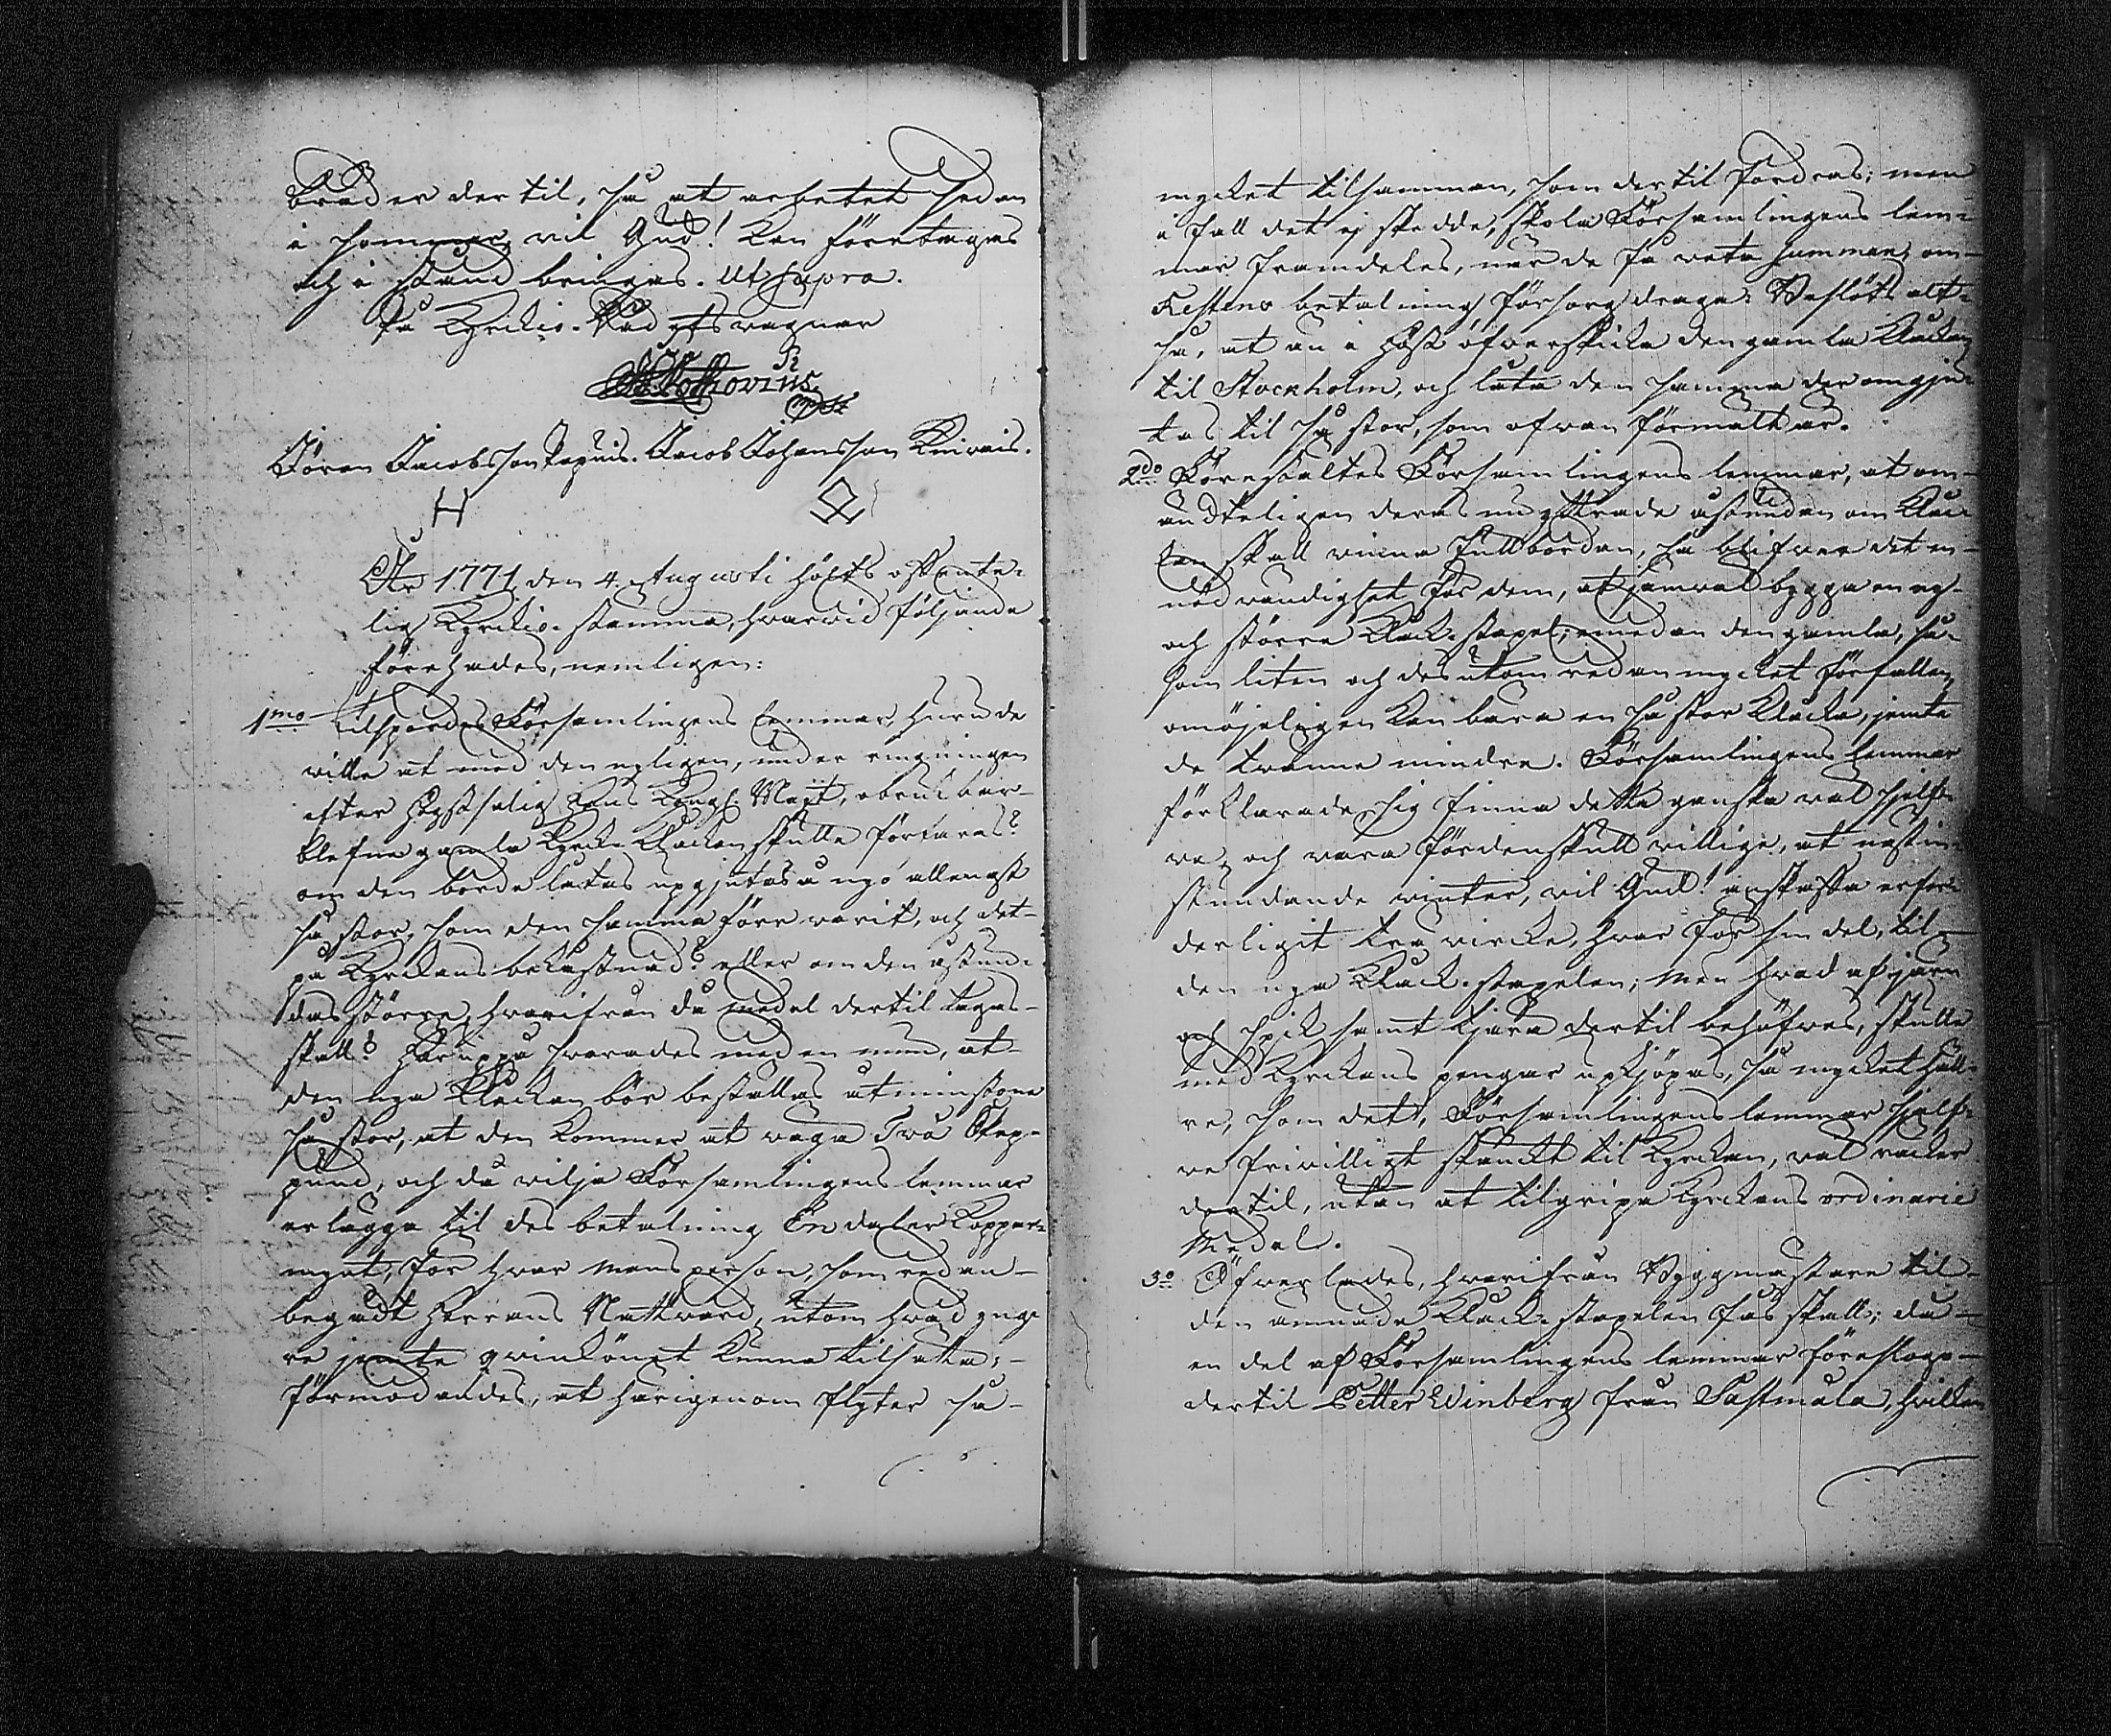 bräder der til, så at arbetet sedan
i sommar, vil Gud! kan företagas
och i stånd bringas. Ut supra.
På Kyrkio-Råd&c wagnar
Jöran Jacobsson Jacob Johansson
H
År 1771, den 4. Augusti hölts offente-
lig Kyrkio-stämma, hwarwid följande
förehades, nemligen:
1mo Tilspordes Församlingens Lemmar, huru de
ville at med den nyligen, under ringningen
efter Högstsalig Hans Kongl. Maj:t, obruk bar-
blefne gamla Kyrko Klockan skulle förfaras?
om den borde låtas upgjutas å nyo allenast
så stor, som den samma förr varit, och det-
på Kyrkans bekåstnad? eller om den åstun-
das större, hvarifrån då medel dertil tagas-
skall? Häruppå svarades med en mun, at-
den nya klåckan bör beställas åtminstone
så stor, at den kommer at väga Två Skep-
pund, och då vilja Församlingens lemmar
erlägga til des betalning En daler Koppar-
mynt, för hvar mansperson, som redan-
begådt Herrans Nattvard, utom hvad yng-
re jemte qvinkönet kunna tilsätta;-
förmodandes, at härigenom flyter så-
mycket tilsamman, som dertil fordras; men
i fall det ej skedde, skola Församlingens lem-
mar framdeles, når de få veta summan, om-
Restens betalning försorg draga. Beslöts alt-
så, at nu i höst öfverskicka den gamla klåckan
til Stockholm, och låta den samma der omgju-
tas til så stor, som ofvan förmält är.
2do Föreståltes Församlingens lemmar, at om-
ändteligen deras nu yttrade åstundan om klåc-
kan skall vinna fullbordan, så blifver det en-
nödvändighet för dem, at jämväl bygga en ny-
och större Klåck-stapel; emedan den gamla, så-
som liten och des utom redan mycket förfallen,
omöjeligen kan bära en så stor klåcka, jemte
de tvänne mindre. Församlingens lemmar
förklarade sig finna detta ganska väl sjelf-
ve, och vara fördenskull villige, at nästin-
stundande winter, vil Gud! anskaffa erfor-
derligit trä virke, hvar för sin del, til-
den nya Klåck-stapelen; men hvad af järn
och spik samt tjära dertil behöfves, skulle
med Kyrkans pengar upkjöpas, så mycket häl-
re, som det, Församlingens lemmar sjelf-
ve friwilligt skänckt til Kyrkan, väl räcker
dertil, utan at tilgripa Kyrkans ordinarie
Medel.
3o Öfverlades, hvarifrån Byggmästare til-
den ämnade Klåck-stapelen fås skall; då-
en del af Församlingens lemmar föreslogo-
dertil Petter Winberg från Sastmåla, hvilken